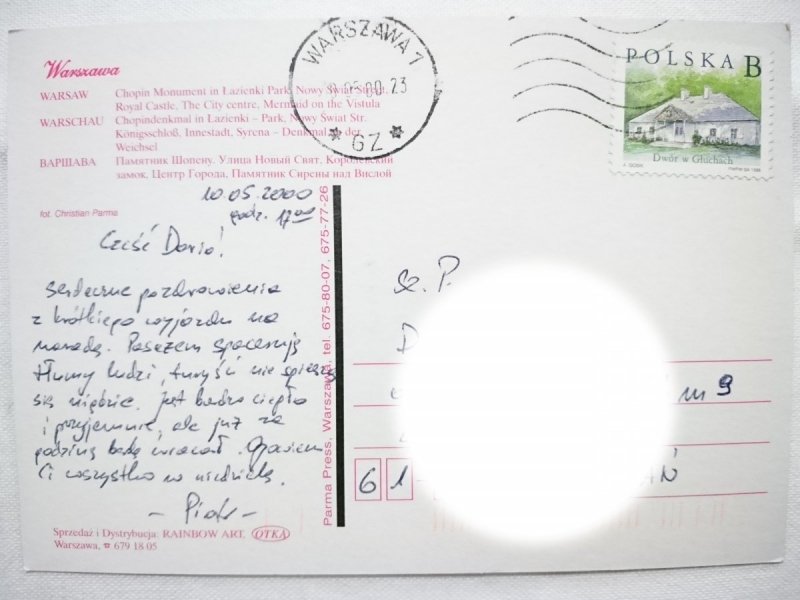 Warszawa
WARSAW Chopin Monument in Łazienki Park, Nowy Świat Street,
Royal Castle, The City centre, Mermaid on the Vistula
WARSCHAU Chopindenkmal in Łazienki – Park, Nowy Świat Str.
Königsschloß, Innestadt, Syrena – Denkmal der
Weichsel
ВАРШАВА Памятник Шопену, Улица Новый Свят, Королевский
замок, Центр Города, Памятник Сирены над Вислой
fot. Christian Parma
10.05.2000
godz. 17⁰⁰
Cześć Daria!
serdeczne pozdrowienia
z krótkiego wyjazdu na
naradę. Pasażem spacerują
tłumy ludzi, turyści nie spieszą
się nigdzie. Jest bardzo ciepło
i przyjemnie, ale już za
godzinę będę wracał. Opowiem
Ci wszystko w niedzielę.
- Piotr -
Sprzedaż i Dystrybucja: RAINBOW ART. OTKA
Warszawa, ☎ 679 18 05
Parma Press, Warszawa, tel. 675-80-07, 675-77-26
WARSZAWA 7
00.23
* GZ *
POLSKA B
Dwór w Głuchach
Sz. P.
D
m 9
61
Ń